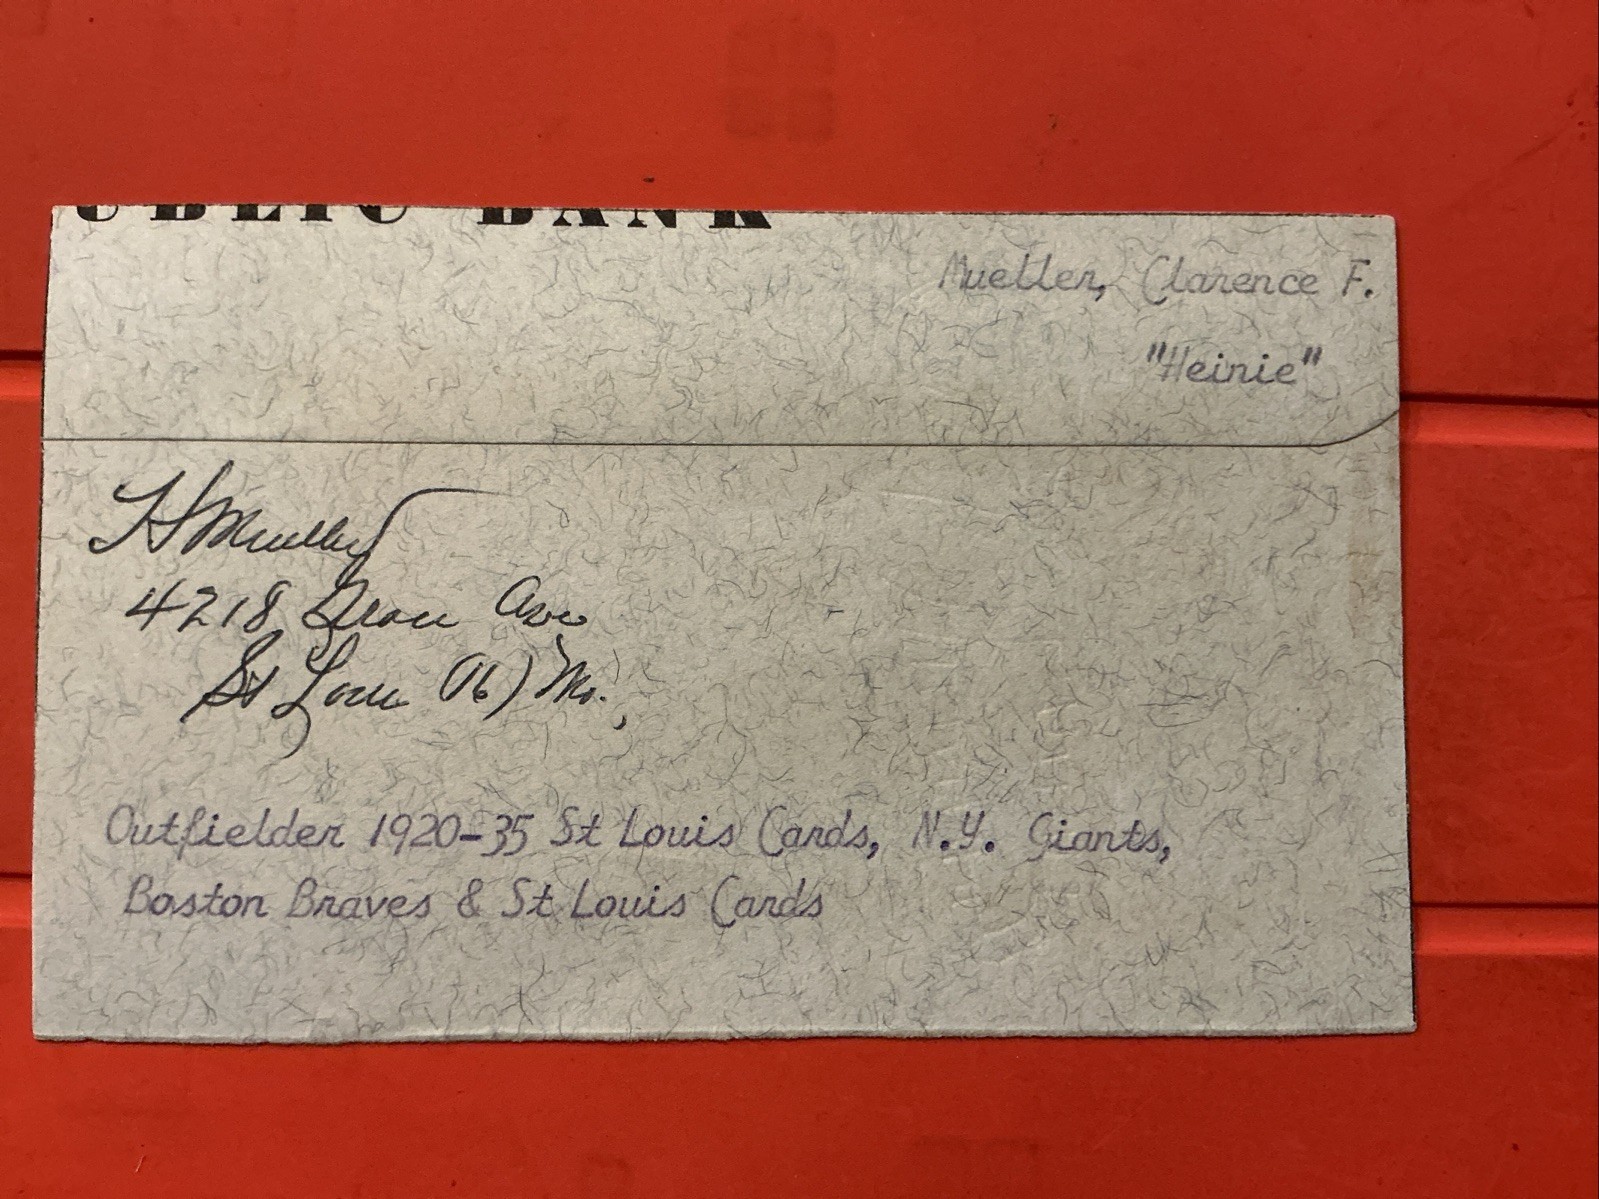 UBLIC BANK
Mueller, Clarence F.
"Heinie"
H Mueller
4218 Ave
St Louis (16) Mo.,
Outfielder 1920-35 St Louis Cards, N.Y. Giants,
Boston Braves & St Louis Cards